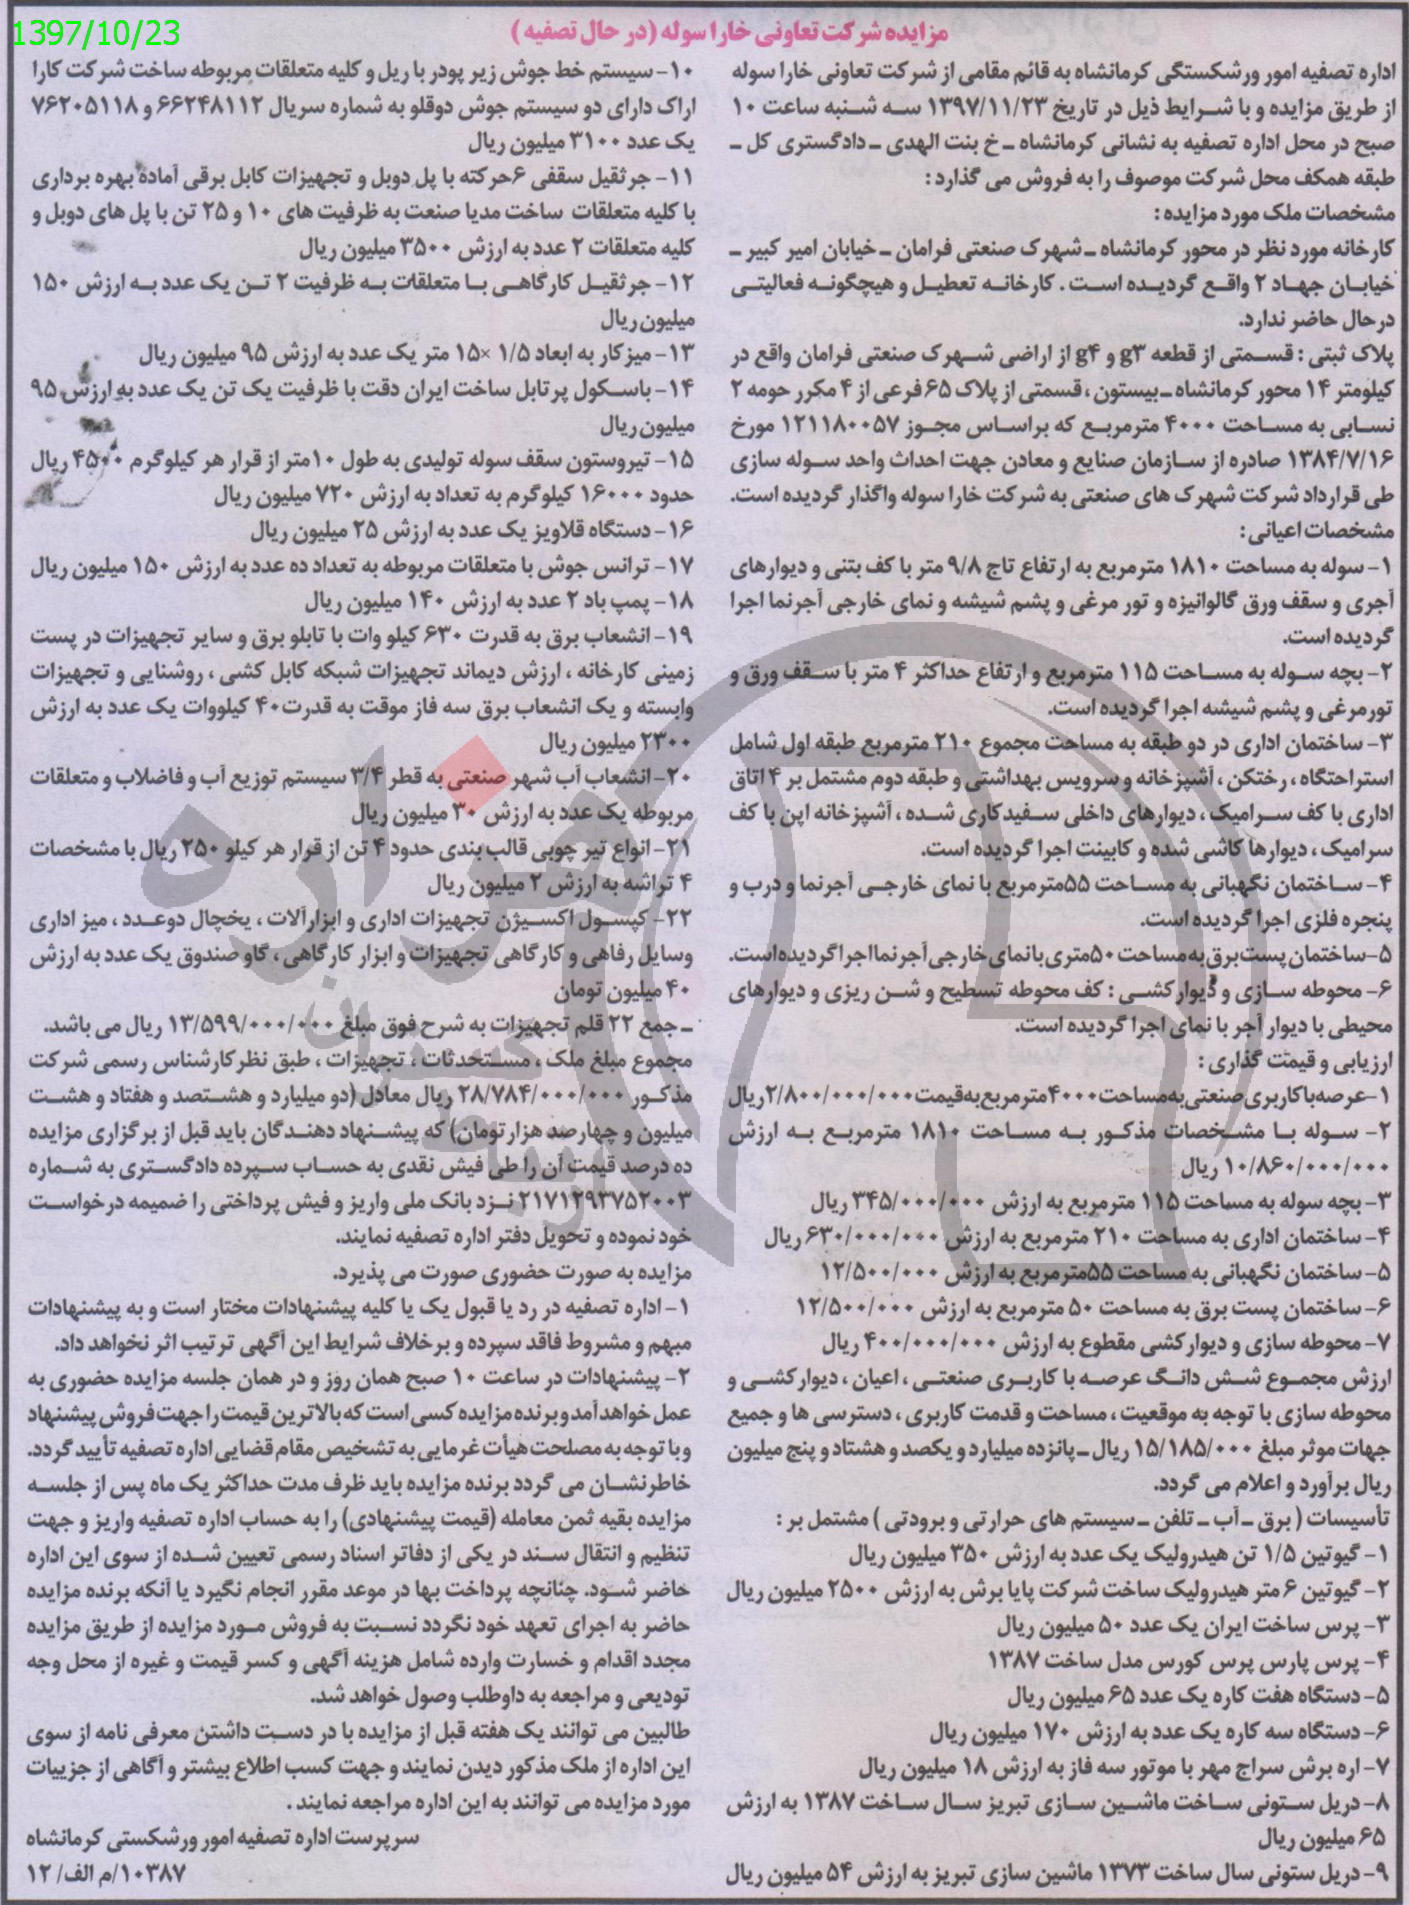 1397/10/23
مزایده شرکت تعاونی خارا سوله (در حال تصفیه)
اداره تصفیه امور ورشکستگی کرمانشاه به قائم مقامی از شرکت تعاونی خارا سوله
از طریق مزایده و با شرایط ذیل در تاریخ ۱۳۹۷/۱۱/۲۳ سه شنبه ساعت ۱۰
صبح در محل اداره تصفیه به نشانی کرمانشاه ـ خ بنت الهدی ـ دادگستری کل ـ
طبقه همکف محل شرکت موصوف را به فروش می گذارد :
مشخصات ملک مورد مزایده :
کارخانه مورد نظر در محور کرمانشاه ـ شهرک صنعتی فرامان ـ خیابان امیر کبیر ـ
خیابان جهاد ۲ واقع گردیده است . کارخانه تعطیل و هیچگونه فعالیتی
در حال حاضر ندارد.
پلاک ثبتی : قسمتی از قطعه g۳ و g۴ از اراضی شهرک صنعتی فرامان واقع در
کیلومتر ۱۴ محور کرمانشاه ـ بیستون ، قسمتی از پلاک ۶۵ فرعی از ۴ مکرر حومه ۲
نسابی به مساحت ۴۰۰۰ مترمربع که براساس مجوز ۱۲۱۱۸۰۰۵۷ مورخ
۱۳۸۴/۷/۱۶ صادره از سازمان صنایع و معادن جهت احداث واحد سوله سازی
طی قرارداد شرکت شهرک های صنعتی به شرکت خارا سوله واگذار گردیده است.
مشخصات اعیانی :
۱- سوله به مساحت ۱۸۱۰ مترمربع به ارتفاع تاج ۹/۸ متر با کف بتنی و دیوارهای
آجری و سقف ورق گالوانیزه و تور مرغی و پشم شیشه و نمای خارجی آجرنما اجرا
گردیده است.
۲- بچه سوله به مساحت ۱۱۵ مترمربع و ارتفاع حداکثر ۴ متر با سقف ورق و
تورمرغی و پشم شیشه اجرا گردیده است.
۳- ساختمان اداری در دو طبقه به مساحت مجموع ۲۱۰ مترمربع طبقه اول شامل
استراحتگاه ، رختکن ، آشپزخانه و سرویس بهداشتی و طبقه دوم مشتمل بر ۴ اتاق
اداری با کف سرامیک ، دیوارهای داخلی سفیدکاری شده ، آشپزخانه اپن با کف
سرامیک ، دیوارها کاشی شده و کابینت اجرا گردیده است.
۴- ساختمان نگهبانی به مساحت ۵۵مترمربع با نمای خارجی آجرنما و درب و
پنجره فلزی اجرا گردیده است.
۵-ساختمان پست برق به مساحت ۵۰متری با نمای خارجی آجرنما اجرا گردیده است.
۶- محوطه سازی و دیوارکشی : کف محوطه تسطیح و شن ریزی و دیوارهای
محیطی با دیوار آجر با نمای اجرا گردیده است.
ارزیابی و قیمت گذاری :
۱-عرصه با کاربری صنعتی به مساحت ۴۰۰۰مترمربع به قیمت ۲/۸۰۰/۰۰۰/۰۰۰ریال
۲- سوله با مشخصات مذکور به مساحت ۱۸۱۰ مترمربع به ارزش
۱۰/۸۶۰/۰۰۰/۰۰۰ ریال
۳- بچه سوله به مساحت ۱۱۵ مترمربع به ارزش ۳۴۵/۰۰۰/۰۰۰ ریال
۴- ساختمان اداری به مساحت ۲۱۰ مترمربع به ارزش ۶۳۰/۰۰۰/۰۰۰ ریال
۵- ساختمان نگهبانی به مساحت ۵۵مترمربع به ارزش ۱۲/۵۰۰/۰۰۰
۶- ساختمان پست برق به مساحت ۵۰ مترمربع به ارزش ۱۲/۵۰۰/۰۰۰
۷- محوطه سازی و دیوارکشی مقطوع به ارزش ۴۰۰/۰۰۰/۰۰۰ ریال
ارزش مجموع شش دانگ عرصه با کاربری صنعتی ، اعیان ، دیوارکشی و
محوطه سازی با توجه به موقعیت ، مساحت و قدمت کاربری ، دسترسی ها و جمیع
جهات موثر مبلغ ۱۵/۱۸۵/۰۰۰ ریال ـ پانزده میلیارد و یکصد و هشتاد و پنج میلیون
ریال برآورد و اعلام می گردد.
تأسیسات ( برق ـ آب ـ تلفن ـ سیستم های حرارتی و برودتی ) مشتمل بر :
۱- گیوتین ۱/۵ تن هیدرولیک یک عدد به ارزش ۳۵۰ میلیون ریال
۲- گیوتین ۶ متر هیدرولیک ساخت شرکت پایا برش به ارزش ۲۵۰۰ میلیون ریال
۳- پرس ساخت ایران یک عدد ۵۰ میلیون ریال
۴- پرس پارس پرس کورس مدل ساخت ۱۳۸۷
۵- دستگاه هفت کاره یک عدد ۶۵ میلیون ریال
۶- دستگاه سه کاره یک عدد به ارزش ۱۷۰ میلیون ریال
۷- اره برش سراج مهر با موتور سه فاز به ارزش ۱۸ میلیون ریال
۸- دریل ستونی ساخت ماشین سازی تبریز سال ساخت ۱۳۸۷ به ارزش
۶۵ میلیون ریال
۹- دریل ستونی سال ساخت ۱۳۷۳ ماشین سازی تبریز به ارزش ۵۴ میلیون ریال
۱۰- سیستم خط جوش زیر پودر با ریل و کلیه متعلقات مربوطه ساخت شرکت کارا
اراک دارای دو سیستم جوش دوقلو به شماره سریال ۶۶۲۴۸۱۱۲ و ۷۶۲۰۵۱۱۸
یک عدد ۳۱۰۰ میلیون ریال
۱۱- جرثقیل سقفی ۶حرکته با پل دوبل و تجهیزات کابل برقی آماده بهره برداری
با کلیه متعلقات ساخت مدیا صنعت به ظرفیت های ۱۰ و ۲۵ تن با پل های دوبل و
کلیه متعلقات ۲ عدد به ارزش ۳۵۰۰ میلیون ریال
۱۲- جرثقیل کارگاهی با متعلقات به ظرفیت ۲ تن یک عدد به ارزش ۱۵۰
میلیون ریال
۱۳- میزکار به ابعاد ۱/۵ ×۱۵ متر یک عدد به ارزش ۹۵ میلیون ریال
۱۴- باسکول پرتابل ساخت ایران دقت با ظرفیت یک تن یک عدد به ارزش ۹۵
میلیون ریال
۱۵- تیروستون سقف سوله تولیدی به طول ۱۰متر از قرار هر کیلوگرم ۴۵۰۰ ریال
حدود ۱۶۰۰۰ کیلوگرم به تعداد به ارزش ۷۲۰ میلیون ریال
۱۶- دستگاه قلاویز یک عدد به ارزش ۲۵ میلیون ریال
۱۷- ترانس جوش با متعلقات مربوطه به تعداد ده عدد به ارزش ۱۵۰ میلیون ریال
۱۸- پمپ باد ۲ عدد به ارزش ۱۴۰ میلیون ریال
۱۹- انشعاب برق به قدرت ۶۳۰ کیلو وات با تابلو برق و سایر تجهیزات در پست
زمینی کارخانه ، ارزش دیماند تجهیزات شبکه کابل کشی ، روشنایی و تجهیزات
وابسته و یک انشعاب برق سه فاز موقت به قدرت۴۰ کیلووات یک عدد به ارزش
۲۳۰۰ میلیون ریال
۲۰- انشعاب آب شهر صنعتی به قطر ۳/۴ سیستم توزیع آب و فاضلاب و متعلقات
مربوطه یک عدد به ارزش ۳۰ میلیون ریال
۲۱- انواع تیر چوبی قالب بندی حدود ۴ تن از قرار هر کیلو ۲۵۰ ریال با مشخصات
۴ تراشه به ارزش ۲ میلیون ریال
۲۲- کپسول اکسیژن تجهیزات اداری و ابزارآلات ، یخچال دوعدد ، میز اداری
وسایل رفاهی و کارگاهی تجهیزات و ابزار کارگاهی ، گاو صندوق یک عدد به ارزش
۴۰ میلیون تومان
ـ جمع ۲۲ قلم تجهیزات به شرح فوق مبلغ ۱۳/۵۹۹/۰۰۰/۰۰۰ ریال می باشد.
مجموع مبلغ ملک ، مستحدثات ، تجهیزات ، طبق نظر کارشناس رسمی شرکت
مذکور ۲۸/۷۸۴/۰۰۰/۰۰۰ ریال معادل (دو میلیارد و هشتصد و هفتاد و هشت
میلیون و چهارصد هزارتومان) که پیشنهاد دهندگان باید قبل از برگزاری مزایده
ده درصد قیمت آن را طی فیش نقدی به حساب سپرده دادگستری به شماره
۲۱۷۱۲۹۳۷۵۲۰۰۳ نزد بانک ملی واریز و فیش پرداختی را ضمیمه درخواست
خود نموده و تحویل دفتر اداره تصفیه نمایند.
مزایده به صورت حضوری صورت می پذیرد.
۱- اداره تصفیه در رد یا قبول یک یا کلیه پیشنهادات مختار است و به پیشنهادات
مبهم و مشروط فاقد سپرده و برخلاف شرایط این آگهی ترتیب اثر نخواهد داد.
۲- پیشنهادات در ساعت ۱۰ صبح همان روز و در همان جلسه مزایده حضوری به
عمل خواهد آمد و برنده مزایده کسی است که بالاترین قیمت را جهت فروش پیشنهاد
و با توجه به مصلحت هیأت غرمایی به تشخیص مقام قضایی اداره تصفیه تأیید گردد.
خاطرنشان می گردد برنده مزایده باید ظرف مدت حداکثر یک ماه پس از جلسه
مزایده بقیه ثمن معامله (قیمت پیشنهادی) را به حساب اداره تصفیه واریز و جهت
تنظیم و انتقال سند در یکی از دفاتر اسناد رسمی تعیین شده از سوی این اداره
حاضر شود. چنانچه پرداخت بها در موعد مقرر انجام نگیرد یا آنکه برنده مزایده
حاضر به اجرای تعهد خود نگردد نسبت به فروش مورد مزایده از طریق مزایده
مجدد اقدام و خسارت وارده شامل هزینه آگهی و کسر قیمت و غیره از محل وجه
تودیعی و مراجعه به داوطلب وصول خواهد شد.
طالبین می توانند یک هفته قبل از مزایده با در دست داشتن معرفی نامه از سوی
این اداره از ملک مذکور دیدن نمایند و جهت کسب اطلاع بیشتر و آگاهی از جزییات
مورد مزایده می توانند به این اداره مراجعه نمایند .
سرپرست اداره تصفیه امور ورشکستی کرمانشاه
۱۰۳۸۷/م الف/ ۱۲
هزاره